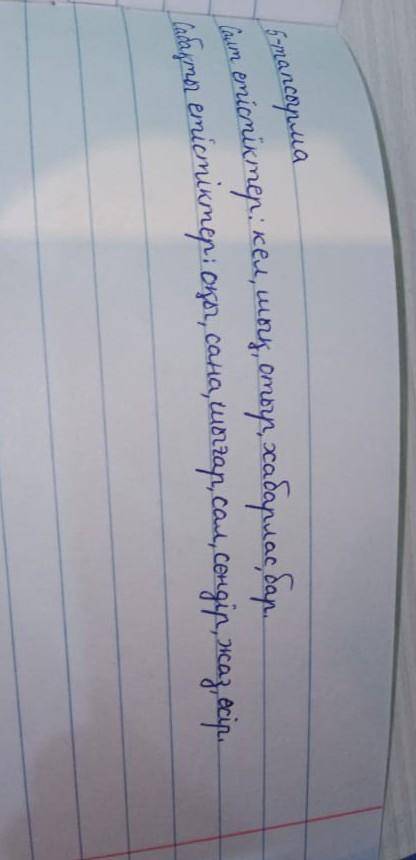 5-тапсырма
Салт етістіктер: кел, шық, отыр, хабарлас, бар.
Сабақты етістіктер: оқы, сана, шығар, сал, сөндір, жаз, өсір.